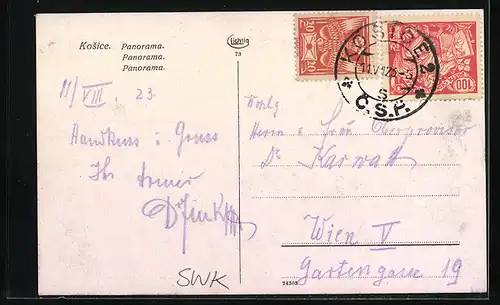 Košice. Panorama.
Panorama.
Panorama.
Lichtig
73
11/VIII. 23.
Handkuss u. Gruss
Ihr treuer
SWK
20 20
100
KOŠICE 2
Č.S.P.
Herrn u. Frau Oberprovisor
Dr Karwath
Wien V
Gartengasse 19
24303